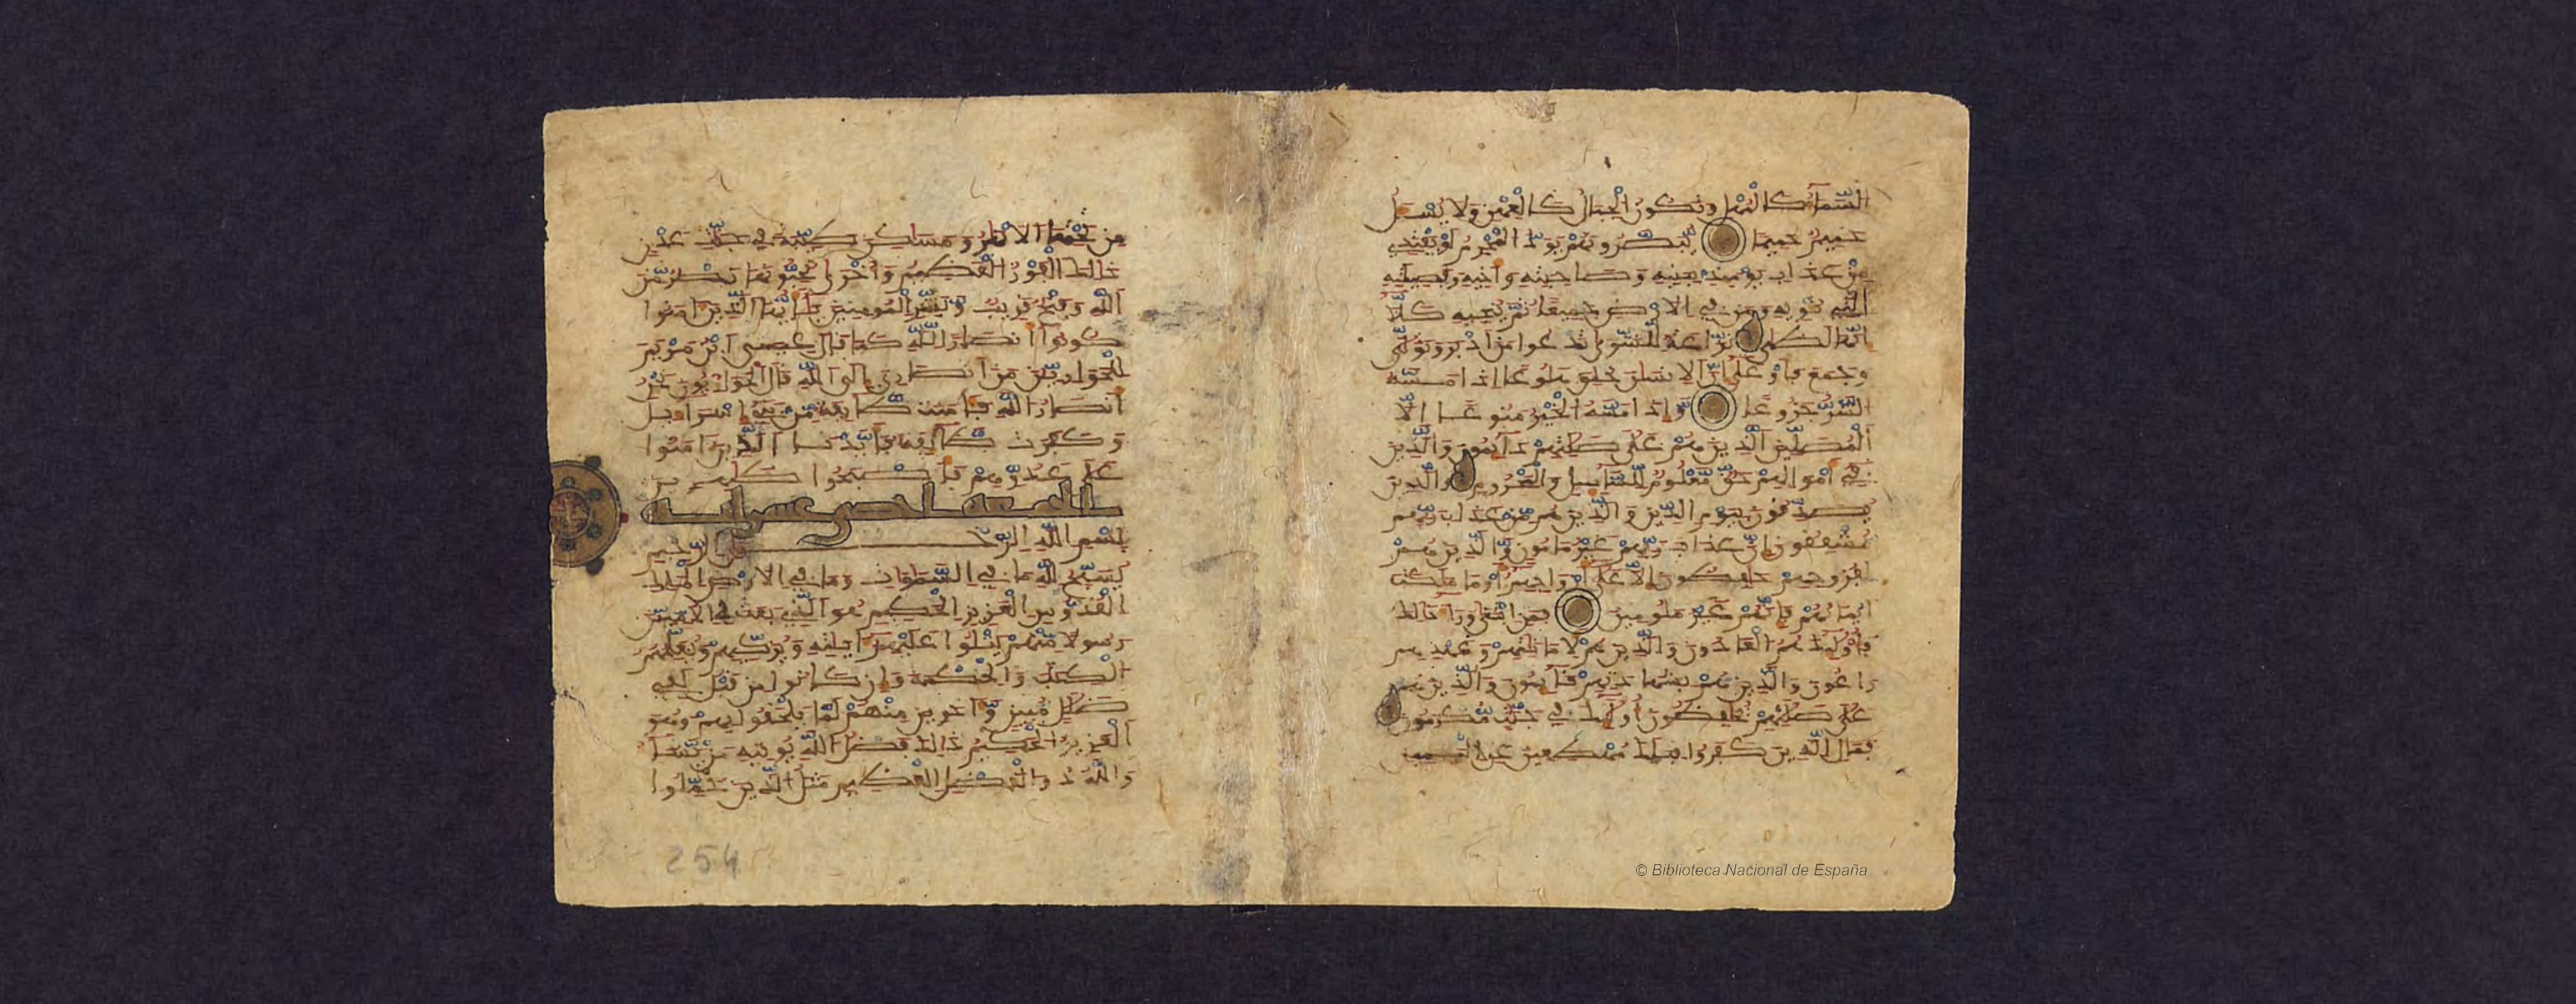 السَّمَآءُ كَالْمُهْلِ وَتَكُونُ الْجِبَالُ كَالْعِهْنِ وَلَا يُسْـَٔلُ
حَمِيمٌ حَمِيمًا يُبَصَّرُونَهُمْ يَوَدُّ الْمُجْرِمُ لَوْ يَفْتَدِي
مِنْ عَذَابِ يَوْمَئِذٍ بِبَنِيهِ وَصَاحِبَتِهِ وَأَخِيهِ وَفَصِيلَتِهِ
الَّتِي تُـْٔوِيهِ وَمَن فِي الْأَرْضِ جَمِيعًا ثُمَّ يُنجِيهِ كَلَّا
إِنَّهَا لَظَىٰ نَزَّاعَةٌ لِّلشَّوَىٰ تَدْعُوا مَنْ أَدْبَرَ وَتَوَلَّىٰ
وَجَمَعَ فَأَوْعَىٰ إِنَّ الْإِنسَٰنَ خُلِقَ هَلُوعًا إِذَا مَسَّهُ
الشَّرُّ جَزُوعًا وَإِذَا مَسَّهُ الْخَيْرُ مَنُوعًا إِلَّا
الْمُصَلِّينَ الَّذِينَ هُمْ عَلَىٰ صَلَاتِهِمْ دَآئِمُونَ وَالَّذِينَ
فِي أَمْوَالِهِمْ حَقٌّ مَّعْلُومٌ لِّلسَّآئِلِ وَالْمَحْرُومِ وَالَّذِينَ
يُصَدِّقُونَ بِيَوْمِ الدِّينِ وَالَّذِينَ هُم مِّنْ عَذَابِ رَبِّهِم
مُّشْفِقُونَ إِنَّ عَذَابَ رَبِّهِمْ غَيْرُ مَأْمُونٍ وَالَّذِينَ هُمْ
لِفُرُوجِهِمْ حَٰفِظُونَ إِلَّا عَلَىٰ أَزْوَاجِهِمْ أَوْ مَا مَلَكَتْ
أَيْمَانُهُمْ فَإِنَّهُمْ غَيْرُ مَلُومِينَ فَمَنِ ابْتَغَىٰ وَرَآءَ ذَٰلِكَ
فَأُوْلَٰئِكَ هُمُ الْعَادُونَ وَالَّذِينَ هُمْ لِأَمَانَٰتِهِمْ وَعَهْدِهِمْ
رَاعُونَ وَالَّذِينَ هُم بِشَهَادَتِهِمْ قَآئِمُونَ وَالَّذِينَ هُمْ
عَلَىٰ صَلَاتِهِمْ يُحَافِظُونَ أُوْلَٰئِكَ فِي جَنَّٰتٍ مُّكْرَمُونَ
فَمَالِ الَّذِينَ كَفَرُوا قِبَلَكَ مُهْطِعِينَ عَنِ الْيَمِينِ
© Biblioteca Nacional de España
مِن تَحْتِهَا الْأَنْهَٰرُ وَمَسَٰكِنَ طَيِّبَةً فِي جَنَّٰتِ عَدْنٍ
ذَٰلِكَ الْفَوْزُ الْعَظِيمُ وَأُخْرَىٰ تُحِبُّونَهَا نَصْرٌ مِّنَ
اللَّهِ وَفَتْحٌ قَرِيبٌ وَبَشِّرِ الْمُومِنِينَ يَٰأَيُّهَا الَّذِينَ ءَامَنُوا
كُونُوا أَنصَارًا لِّلَّهِ كَمَا قَالَ عِيسَى ابْنُ مَرْيَمَ
لِلْحَوَارِيِّنَ مَنْ أَنصَارِيَ إِلَى اللَّهِ قَالَ الْحَوَارِيُّونَ نَحْنُ
أَنصَارُ اللَّهِ فَـَٔامَنَت طَّآئِفَةٌ مِّن بَنِي إِسْرَآءِيلَ
وَكَفَرَت طَّآئِفَةٌ فَأَيَّدْنَا الَّذِينَ ءَامَنُوا
عَلَىٰ عَدُوِّهِمْ فَأَصْبَحُوا ظَٰهِرِينَ
الجمعة احدى عشر اية
بِسْمِ اللَّهِ الرَّحْمَٰنِ الرَّحِيمِ
يُسَبِّحُ لِلَّهِ مَا فِي السَّمَٰوَٰتِ وَمَا فِي الْأَرْضِ الْمَلِكِ
الْقُدُّوسِ الْعَزِيزِ الْحَكِيمِ هُوَ الَّذِي بَعَثَ فِي الْأُمِّيِّنَ
رَسُولًا مِّنْهُمْ يَتْلُوا عَلَيْهِمْ ءَايَٰتِهِ وَيُزَكِّيهِمْ وَيُعَلِّمُهُمُ
الْكِتَٰبَ وَالْحِكْمَةَ وَإِن كَانُوا مِن قَبْلُ لَفِي
ضَلَٰلٍ مُّبِينٍ وَءَاخَرِينَ مِنْهُمْ لَمَّا يَلْحَقُوا بِهِمْ وَهُوَ
الْعَزِيزُ الْحَكِيمُ ذَٰلِكَ فَضْلُ اللَّهِ يُوتِيهِ مَن يَّشَآءُ
وَاللَّهُ ذُو الْفَضْلِ الْعَظِيمِ مَثَلُ الَّذِينَ حُمِّلُوا
254